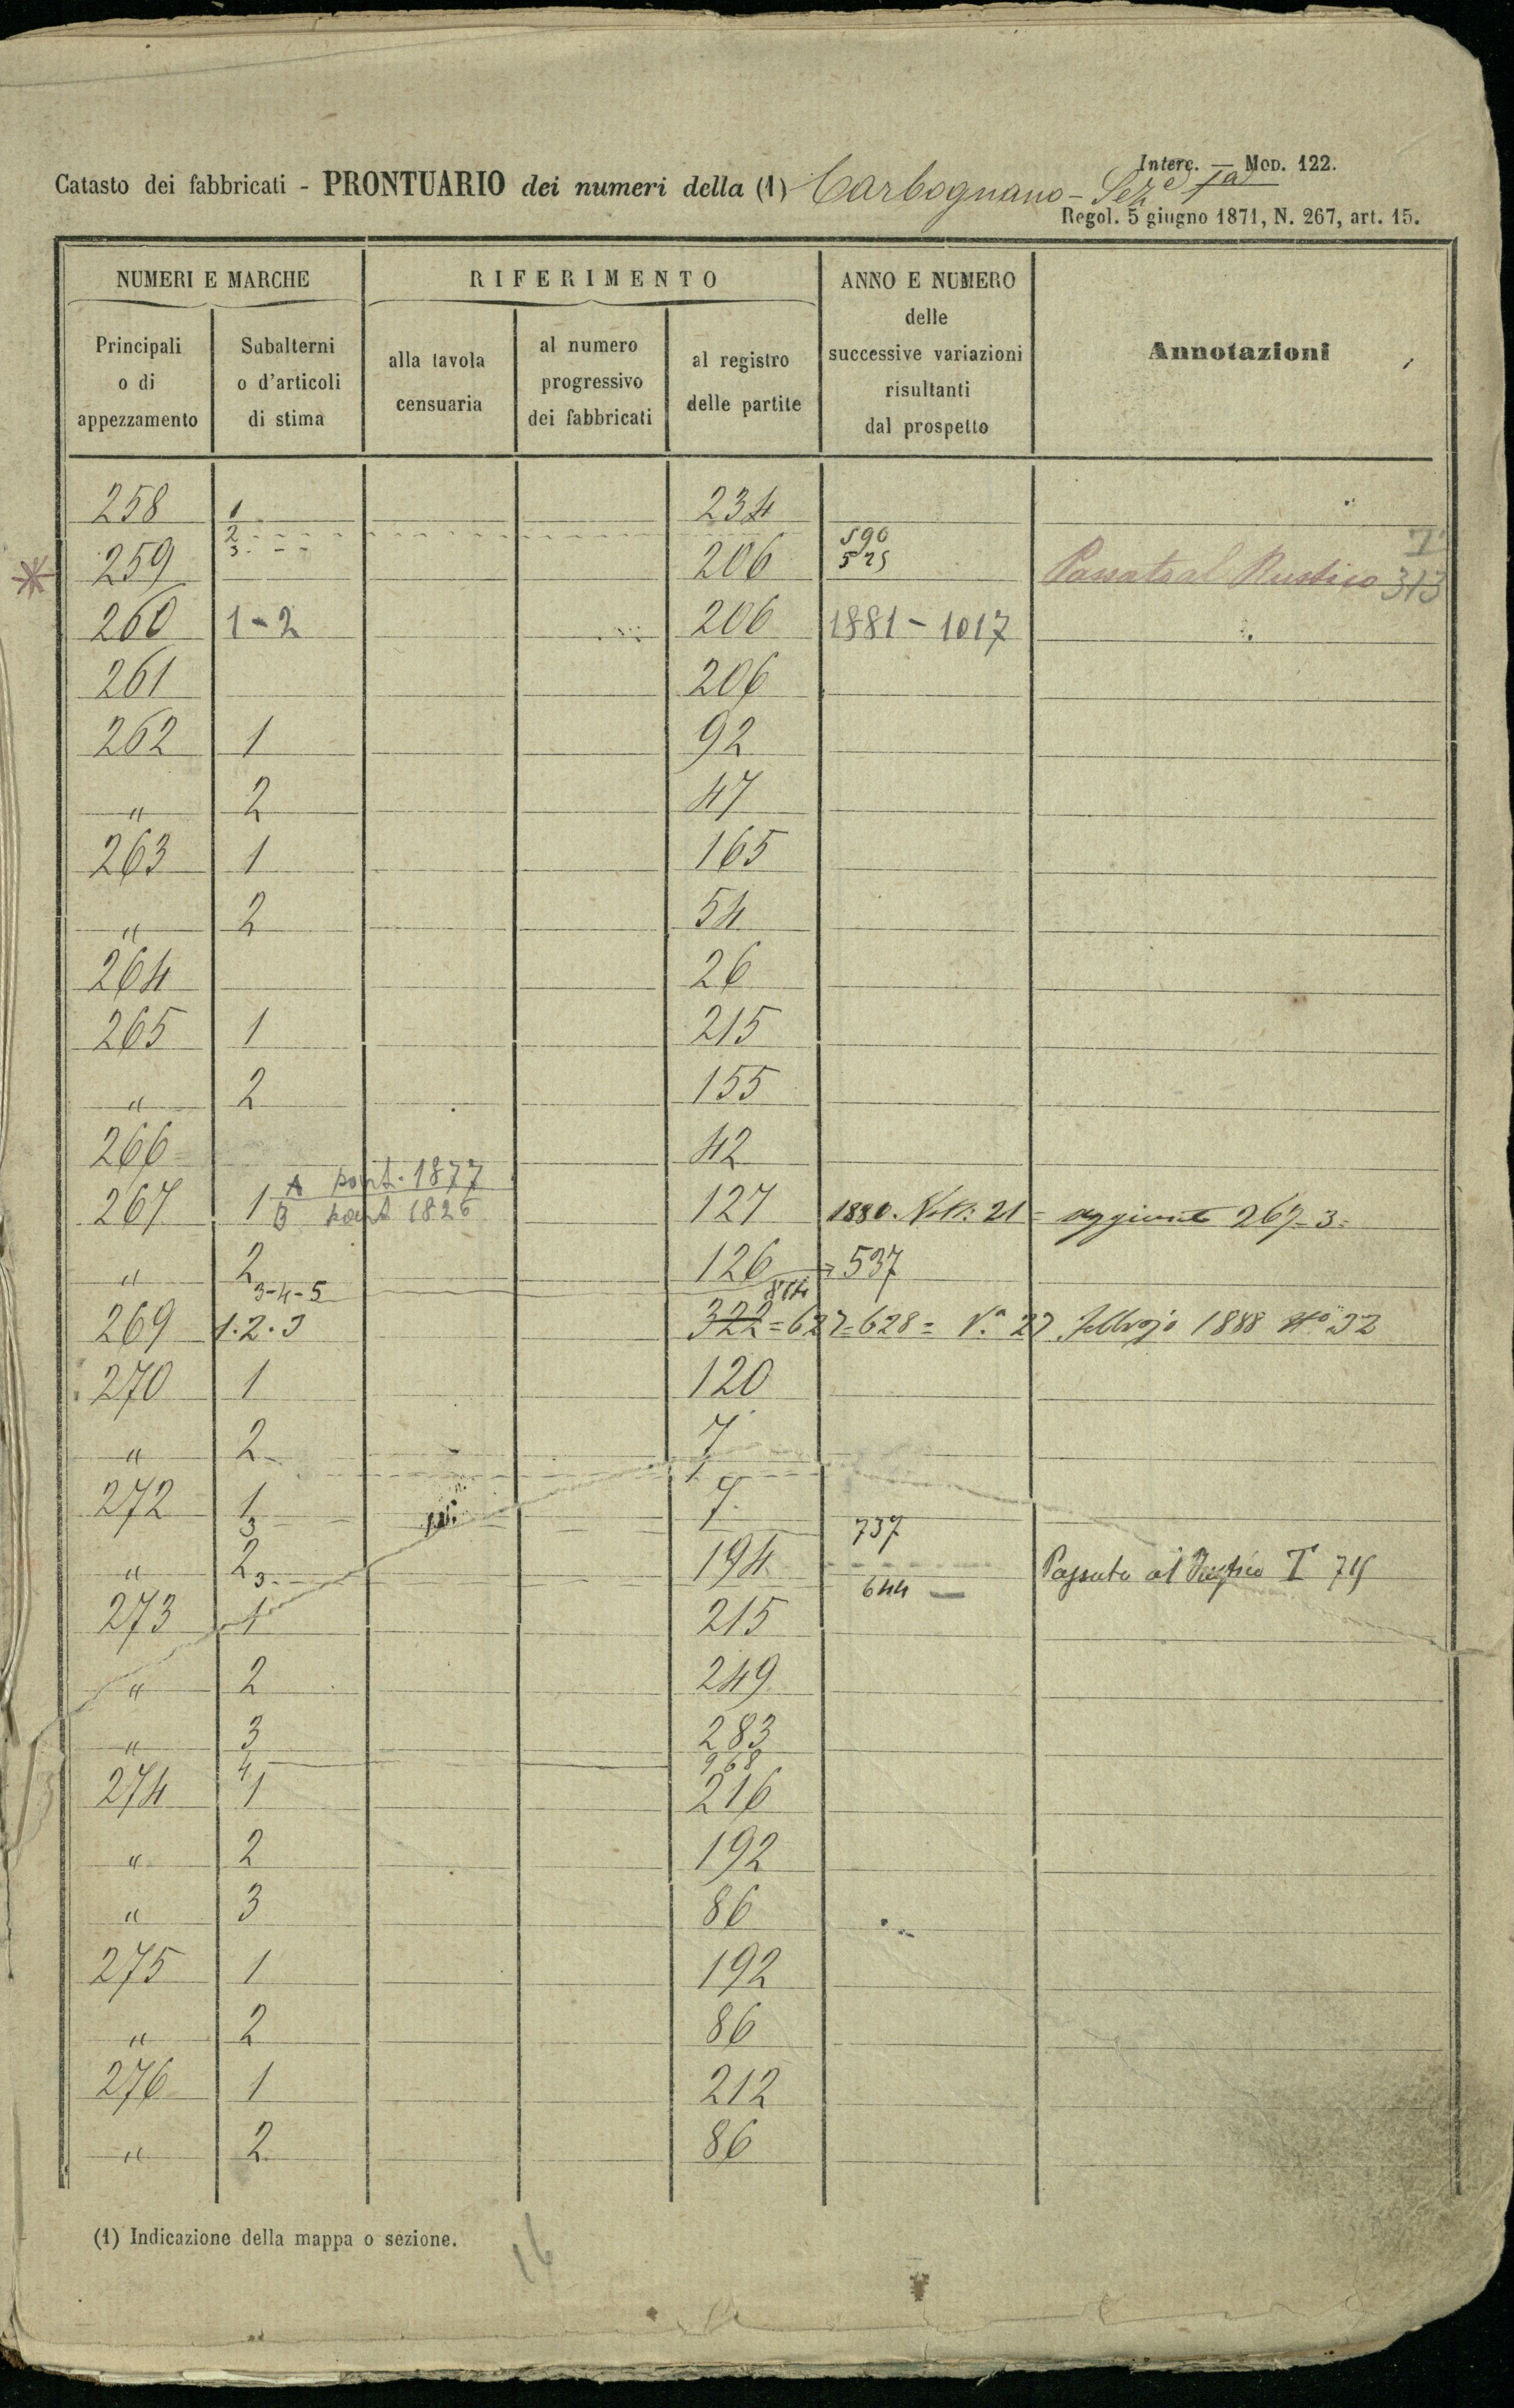 Interc. — Mod. 122.
Catasto dei fabbricati - PRONTUARIO dei numeri della (1) Carbognano - Sez.e Ia
Regol. 5 giugno 1871, N. 267, art. 15.
NUMERI E MARCHE RIFERIMENTO ANNO E NUMERO delle successive variazioni risultanti dal prospetto Annotazioni
Principali o di appezzamento Subalterni o d'articoli di stima alla tavola censuaria al numero progressivo dei fabbricati al registro delle partite
258 1 234
2 590
3 525
259 206 Passata al Rustico 313
260 1-2 206 1881-1017
261 206
262 1 92
" 2 47
263 1 165
" 2 54
264 26
265 1 215
" 2 155
266 42
A part. 1877
267 1 B part 1826 127 1880. Volt: 21 = aggiunto 267-3=
" 2 126 = 537
3-4-5
269 1.2.3 322 = 627=628= V.a 27 Febbrajo 1888 No 32
270 1 120
" 2 7
272 1 7
3 737
" 2 194 Passato al Rustico T 715
3 644
273 1 215
" 2 249
" 3 283
4 968
274 1 216
" 2 192
" 3 86
275 1 192
" 2 86
276 1 212
" 2 86
(1) Indicazione della mappa o sezione.
16